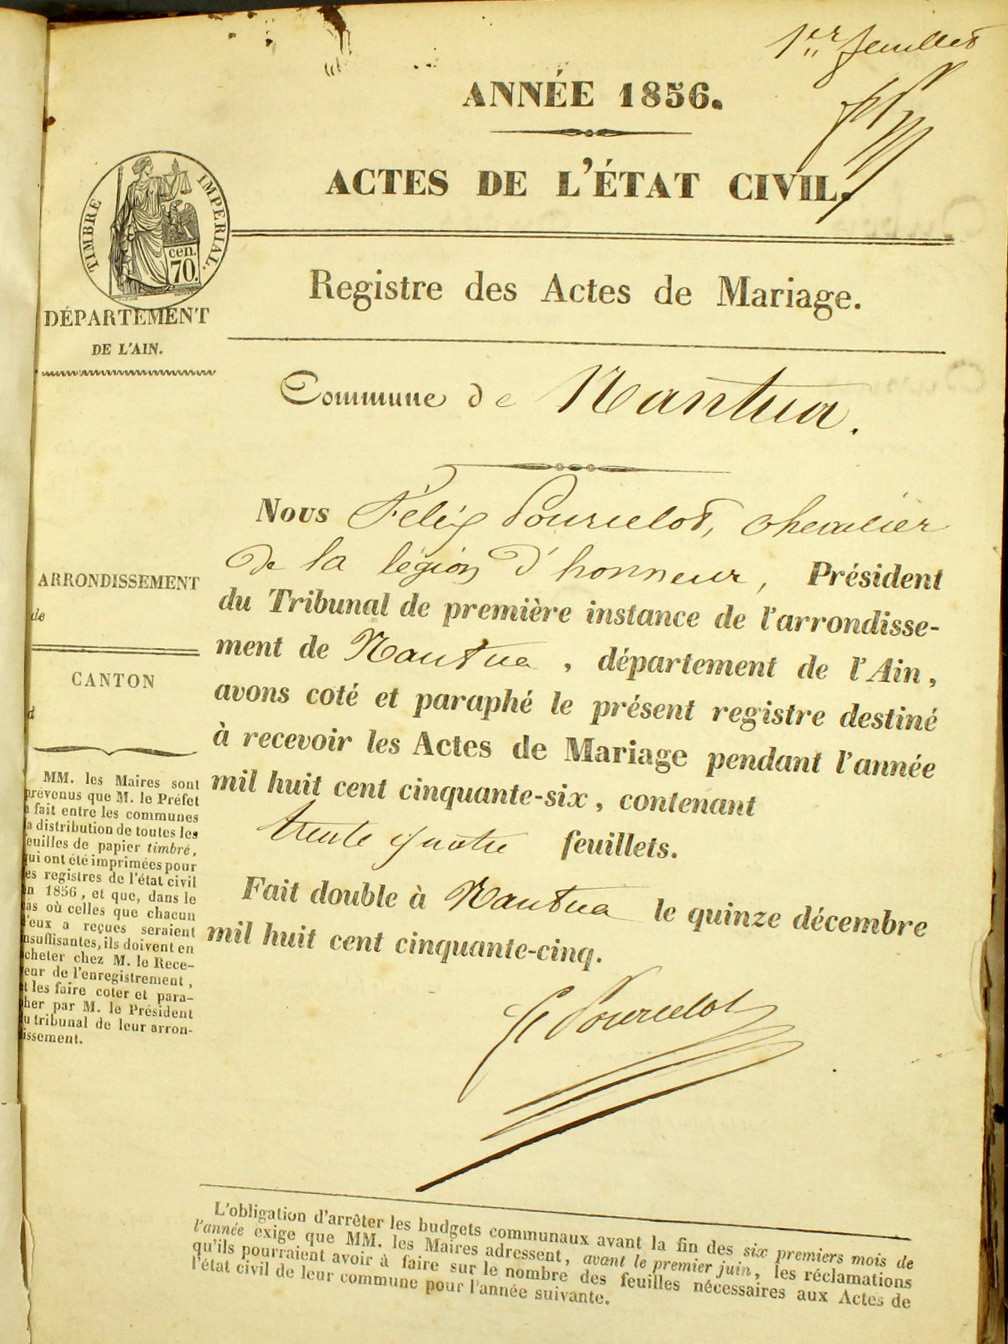 1er feuillet
ANNÉE 1856.
ACTES DE L'ÉTAT CIVIL.
TIMBRE IMPÉRIAL.
cen.
70.
DÉPARTEMENT
DE L'AIN.
Registre des Actes de Mariage.
Commune de Nantua.
ARRONDISSEMENT
de
CANTON
d
MM. les Maires sont
prévenus que M. le Préfet
a fait entre les communes
la distribution de toutes les
feuilles de papier timbré,
qui ont été imprimées pour
les registres de l'état civil
en 1856, et que, dans le
cas où celles que chacun
d'eux a reçues seraient
insuffisantes, ils doivent en
acheter chez M. le Rece-
veur de l'enregistrement,
et les faire coter et para-
pher par M. le Président
du tribunal de leur arron-
dissement.
Nous Félix Pourcelot, chevalier
de la légion d'honneur, Président
du Tribunal de première instance de l'arrondisse-
ment de Nantua, département de l'Ain,
avons coté et paraphé le présent registre destiné
à recevoir les Actes de Mariage pendant l'année
mil huit cent cinquante-six, contenant
trente quatre feuillets.
Fait double à Nantua le quinze décembre
mil huit cent cinquante-cinq.
Pourcelot
L'obligation d'arrêter les budgets communaux avant la fin des six premiers mois de
l'année exige que MM. les Maires adressent, avant le premier juin, les réclamations
qu'ils pourraient avoir à faire sur le nombre des feuilles nécessaires aux Actes de
l'état civil de leur commune pour l'année suivante.